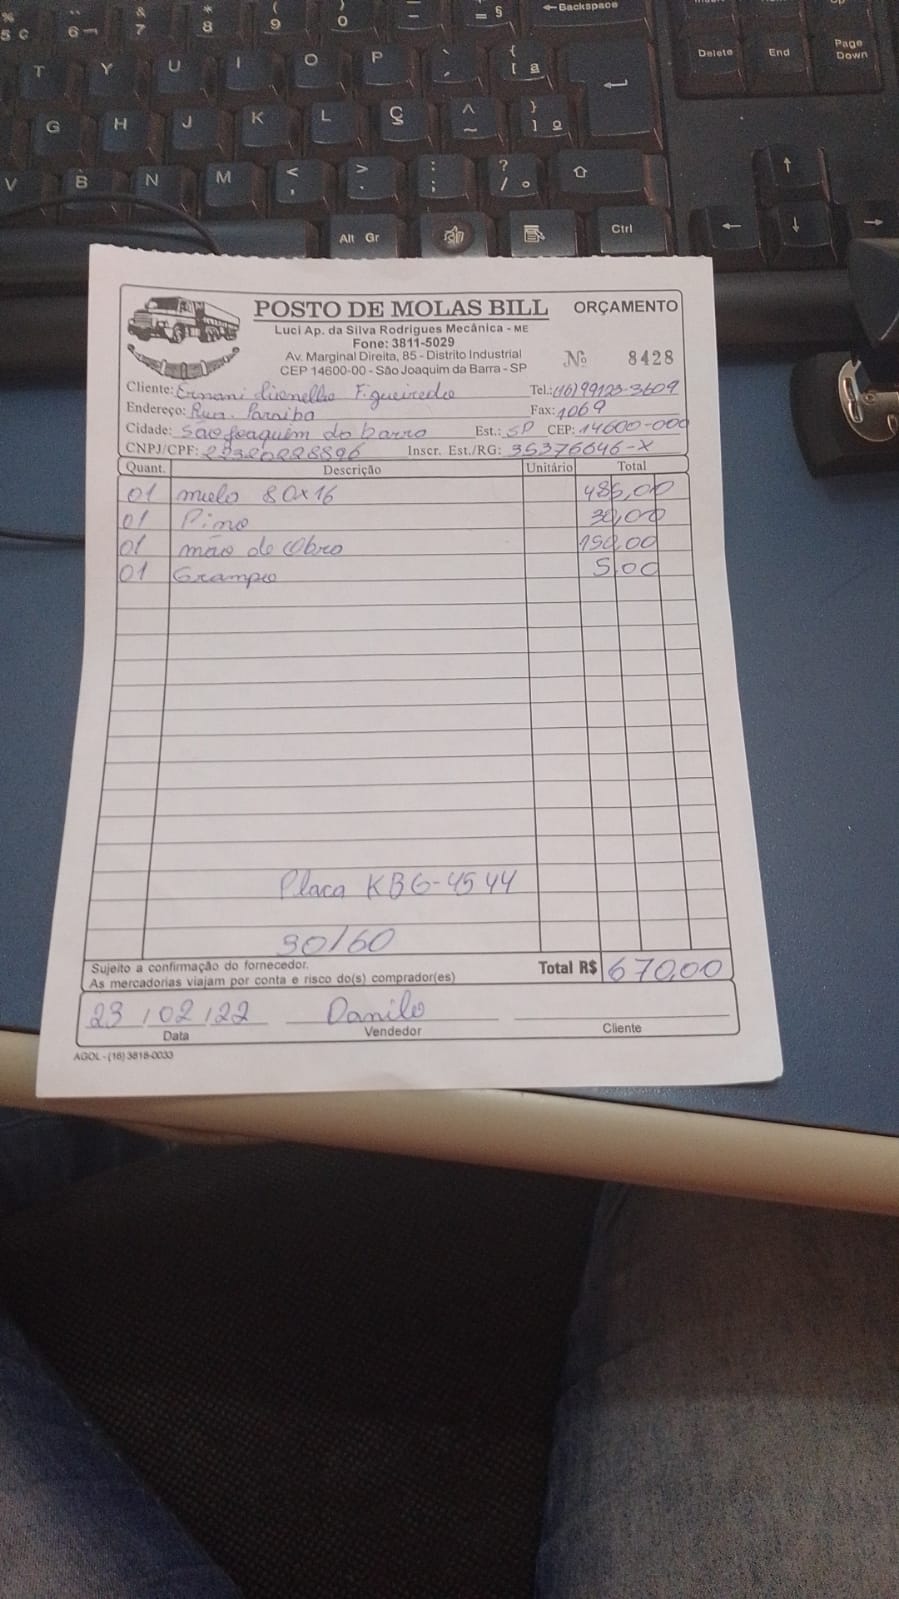 % 5 ¢ ¨ 6 ¬ & 7 * 8 ( 9 ) 0 _ - + = § ←Backspace
T Y U I O P ` ´ { [ ª Delete End Page Down
G H J K L Ç ^ ~ } ] º
V B N M < , > . : ; ? / °
Alt Gr Ctrl
POSTO DE MOLAS BILL ORÇAMENTO
Luci Ap. da Silva Rodrigues Mecânica - ME
Fone: 3811-5029
Av. Marginal Direita, 85 - Distrito Industrial Nº 8428
CEP 14600-00 - São Joaquim da Barra - SP
Cliente: Ernani Lionello Figueiredo Tel.: (16) 99123-3609
Endereço: Rua. Paraiba Fax: 1069
Cidade: São Joaquim da barra Est.: SP CEP: 14600-000
CNPJ/CPF: 22320228896 Inscr. Est./RG: 35376646-X
Quant. Descrição Unitário Total
01 mola 80x16 485,00
01 Pino 30,00
01 mão de Obra 150,00
01 Grampo 5,00
Placa KBG-4544
30/60
Sujeito a confirmação do fornecedor.
As mercadorias viajam por conta e risco do(s) comprador(es) Total R$ 670,00
23/02/22 Danilo
Data Vendedor Cliente
AGOL - (16) 3818-0033